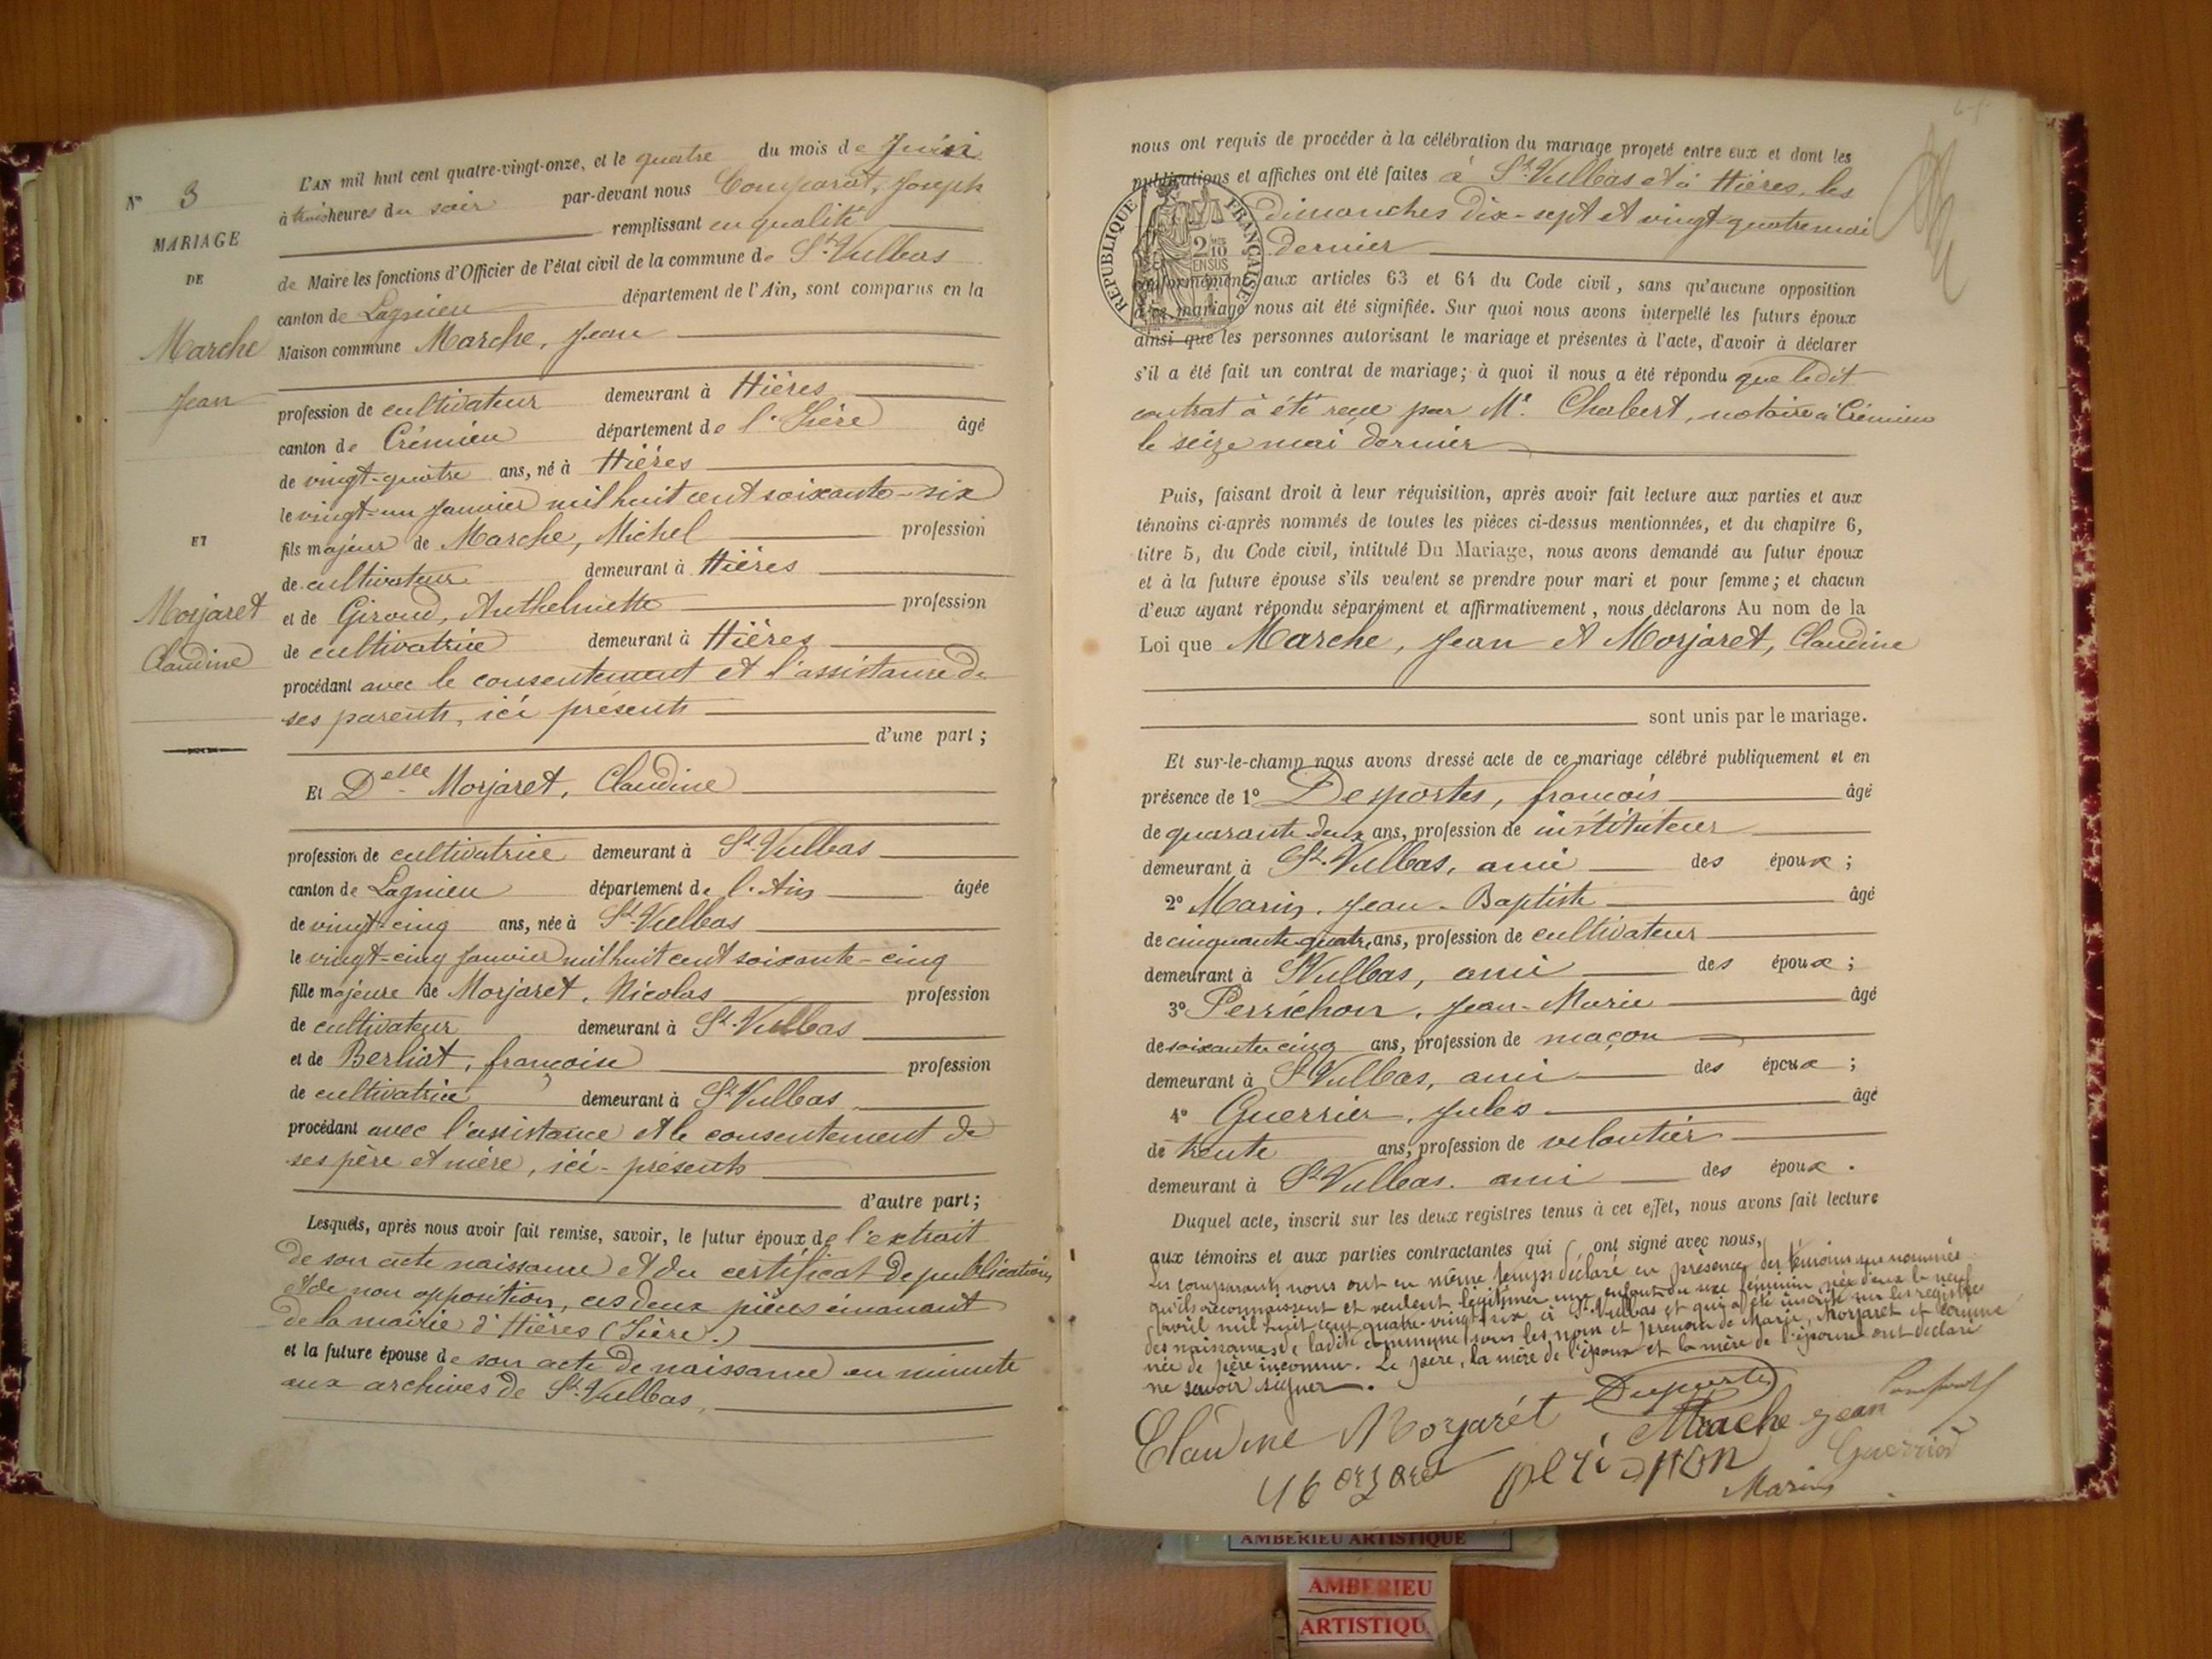 N° 3
MARIAGE
DE
Marche
Jean
ET
Morjaret
Claudine
L'AN mil huit cent quatre-vingt-onze, et le quatre du mois de Juin
à trois heures du soir par-devant nous Comparat, Joseph
remplissant en qualité
de Maire les fonctions d'Officier de l'état civil de la commune de St Vulbas
canton de Lagnieu département de l'Ain, sont comparus en la
Maison commune Marche, Jean
profession de cultivateur demeurant à Hières
canton de Crémieu département de l'Isère âgé
de vingt-quatre ans, né à Hières
le vingt-un Janvier mil huit cent soixante-six
fils majeur de Marche, Michel profession
de cultivateur demeurant à Hières
et de Giroud, Anthelmette profession
de cultivatrice demeurant à Hières
procédant avec le consentement et l'assistance de
ses parents, ici présents
d'une part ;
Et Delle Morjaret, Claudine
profession de cultivatrice demeurant à St Vulbas
canton de Lagnieu département de l'Ain âgée
de vingt-cinq ans, née à St Vulbas
le vingt-cinq Janvier mil huit cent soixante-cinq
fille majeure de Morjaret, Nicolas profession
de cultivateur demeurant à St Vulbas
et de Berliat, françoise profession
de cultivatrice demeurant à St Vulbas
procédant avec l'assistance et le consentement de
ses père et mère, ici-présents
d'autre part ;
Lesquels, après nous avoir fait remise, savoir, le futur époux de l'extrait
de son acte naissance et du certificat de publications
et de non opposition, ces deux pièces émanant
de la mairie d'Hières (Isère.)
et la future épouse de son acte de naissance en minute
aux archives de St Vulbas,
nous ont requis de procéder à la célébration du mariage projeté entre eux et dont les
publications et affiches ont été faites à St Vulbas et à Hières, les
dimanches dix-sept et vingt-quatre mai
dernier
conformément aux articles 63 et 64 du Code civil, sans qu'aucune opposition
à ce mariage nous ait été signifiée. Sur quoi nous avons interpellé les futurs époux
ainsi que les personnes autorisant le mariage et présentes à l'acte, d'avoir à déclarer
s'il a été fait un contrat de mariage; à quoi il nous a été répondu que ledit
contrat à été reçu par Me. Chabert, notaire à Crémieu
le seize mai dernier
RÉPUBLIQUE FRANÇAISE
2/10
EN SUS
Puis, faisant droit à leur réquisition, après avoir fait lecture aux parties et aux
témoins ci-après nommés de toutes les pièces ci-dessus mentionnées, et du chapitre 6,
titre 5, du Code civil, intitulé Du Mariage, nous avons demandé au futur époux
et à la future épouse s'ils veulent se prendre pour mari et pour femme; et chacun
d'eux ayant répondu séparément et affirmativement, nous déclarons Au nom de la
Loi que Marche, Jean et Morjaret, Claudine
sont unis par le mariage.
Et sur-le-champ nous avons dressé acte de ce mariage célébré publiquement et en
présence de 1° Desportes, françois âgé
de quarante deux ans, profession de instituteur
demeurant à St. Vulbas, ami des époux ;
2° Marin, Jean-Baptiste âgé
de cinquante-quatre ans, profession de cultivateur
demeurant à St Vulbas, ami des époux ;
3° Perrichon, Jean-Marie âgé
de soixante cinq ans, profession de maçon
demeurant à St Vulbas, ami des époux ;
4° Guerrier, Jules âgé
de trente ans, profession de veloutier
demeurant à St Vulbas. ami des époux.
Duquel acte, inscrit sur les deux registres tenus à cet effet, nous avons fait lecture
aux témoins et aux parties contractantes qui ont signé avec nous,
Les comparants nous ont en même temps déclaré en présence des témoins sus nommés
qu'ils reconnaissent et veulent légitimer une enfant du sexe féminin née d'eux le neuf
avril mil huit cent quatre-vingt-six à St Vulbas et qui a été inscrite sur les registres
des naissances de ladite commune sous les nom et prénom de Marie, Morjaret et comme
née de père inconnu. Le père, la mère de l'époux et la mère de l'épouse ont déclaré
ne savoir signer.
Claudine Morjarét Desportes Marche jean Comparat
Morjaret perichon Guerrier
Marin
AMBERIEU ARTISTIQUE
AMBERIEU
ARTISTIQU